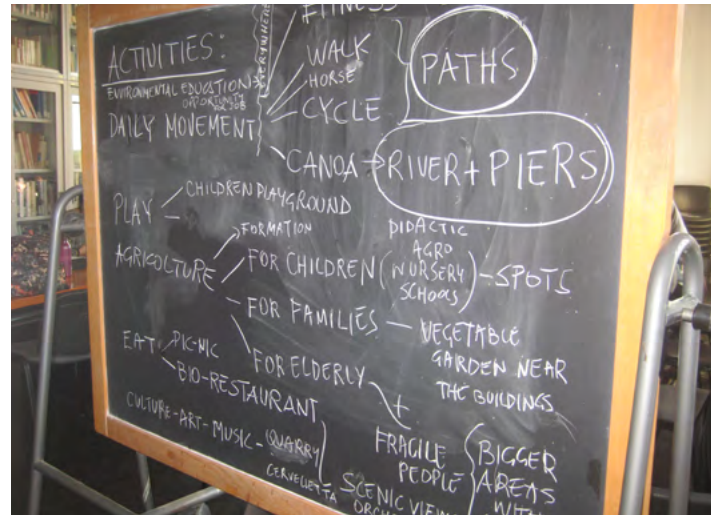 ACTIVITIES:
EVERYWHERE
FITNESS
ENVIRONMENTAL EDUCATION
OPPORTUNITY
DAILY MOVEMENT
WALK
HORSE
CYCLE
CANOA → RIVER + PIERS
PATHS
PLAY - CHILDREN PLAYGROUND
AGRICOLTURE
FORMATION
FOR CHILDREN (DIDACTIC
AGRO
NURSERY
SCHOOLS) - SPOTS
FOR FAMILIES - VEGETABLE
GARDEN NEAR
THE BUILDINGS
FOR ELDERLY +
FRAGILE
PEOPLE
BIGGER
AREAS
EAT
PIC-NIC
BIO-RESTAURANT
CULTURE-ART-MUSIC-QUARRY
CERVELLETTA
SCENIC VIEW